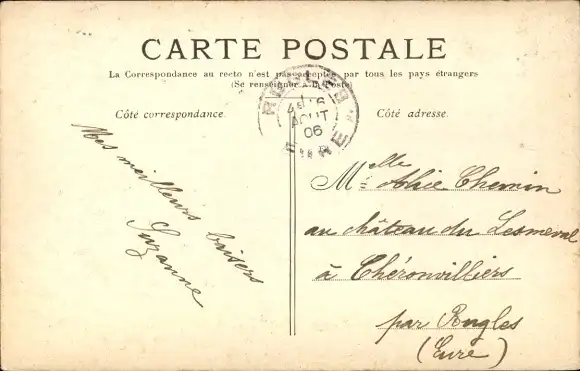 CARTE POSTALE
La Correspondance au recto n'est pas acceptée par tous les pays étrangers
(Se renseigner à la Poste)
Côté correspondance.
Côté adresse.
AOUT
06
Mes meilleurs baisers
Suzanne
Melle Alice Chemin
au château du Lesmeval
à Chéronvilliers
par Rugles
(Eure)